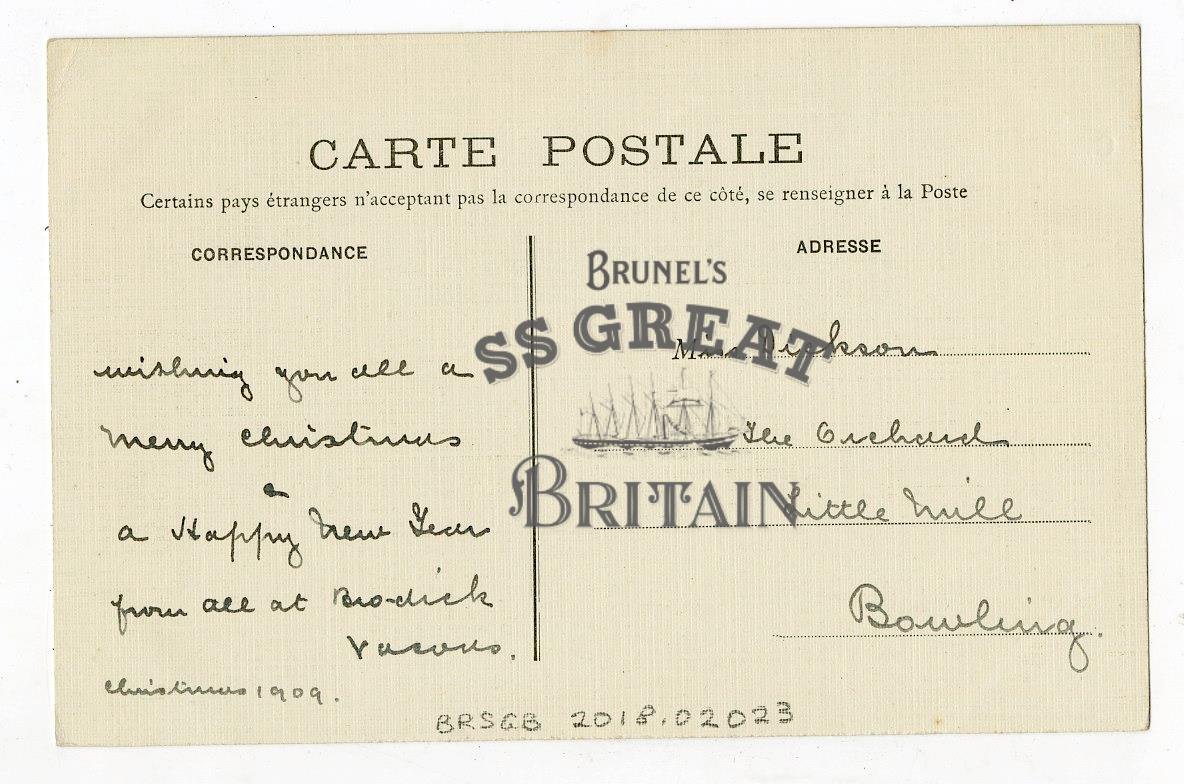 CARTE POSTALE
Certains pays étrangers n'acceptant pas la correspondance de ce côté, se renseigner à la Poste
CORRESPONDANCE
ADRESSE
BRUNEL'S
SS GREAT
BRITAIN
wishing you all a
merry christmas
&
a Happy New Year
from all at Brodick
christmas 1909.
Miss Dickson
The Orchard
Little Mill
Bowling.
BRSGB 2018.02023